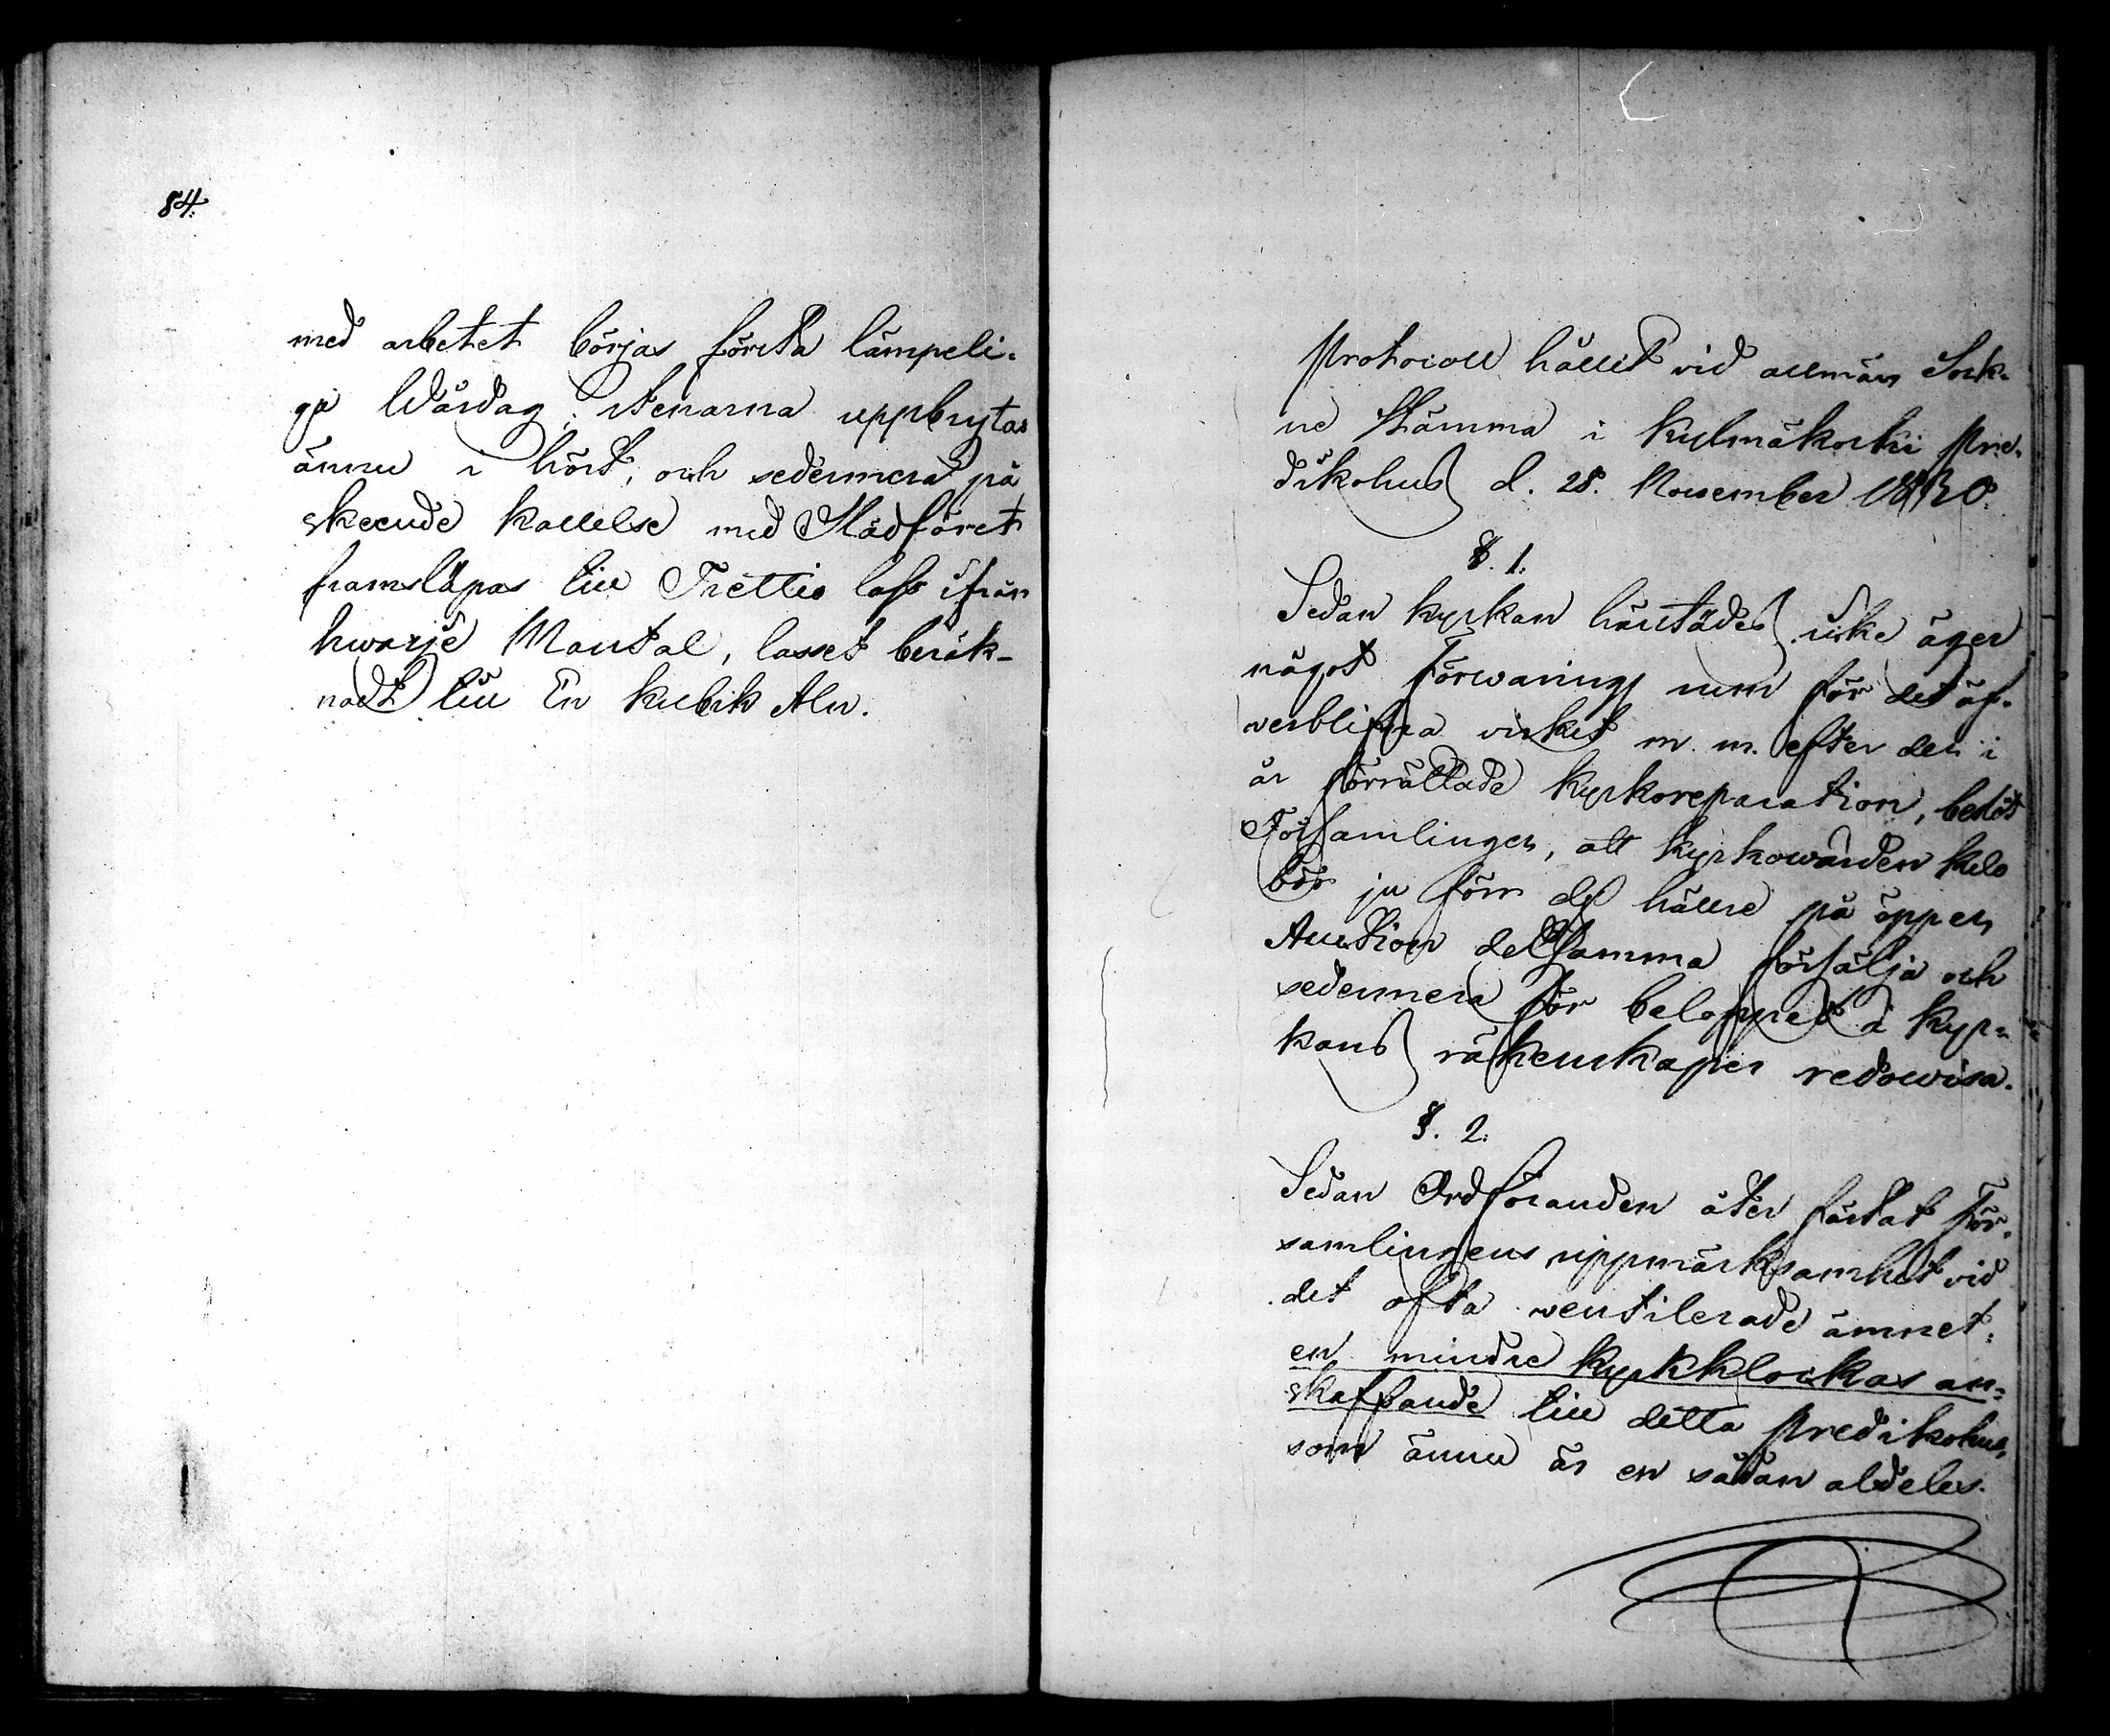 84.
med arbetet börjas första lämpeli-
ga Wårdag; stenarna uppbrytas
ännu i höst, och sedermera på
skeende kallelse med Slädföret
framsläpas till Trettio lass ifrån
hwarje Mantal, lasset beräk-
nadt till En kubik Aln.
Protocoll hållit vid allmän Sock-
ne Stämma i Kylmäkoski Pre-
dikohus d. 28. November 1830.
§. 1.
Sedan kyrkan härstädes icke äger
något Förwarings rum för det öf-
werblifna virket m. m. efter den i
år förrättade Kyrkoreparation, beslöt
Församlingen, att Kyrkowärden
bör ju förr des hällre på öppen
Auction detsamma försälja och
sedermera för beloppet i Kyr-
kans räkenskaper redowisa.
§. 2.
Sedan Ordföranden åter fästat För-
samlingens uppmärksamhet vid
det ofta ventilerade ämnet:
en mindre Kyrkklockas an-
skaffande till detta Predikohus,
som ännu är en sådan aldeles